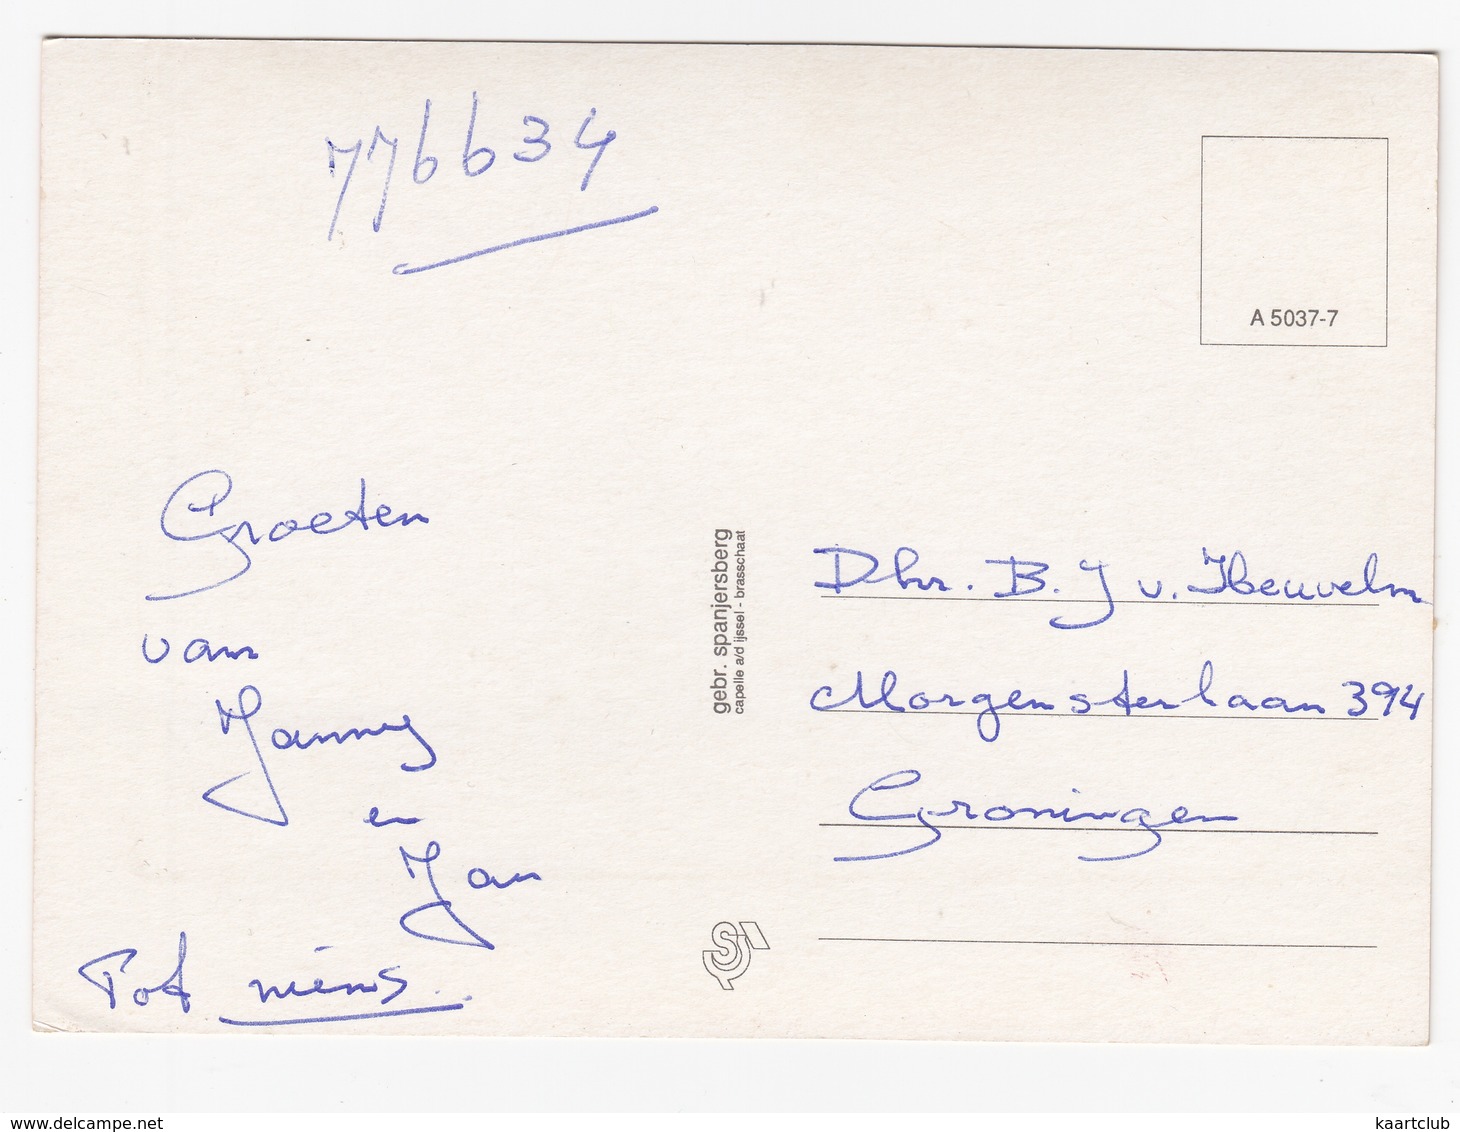 776634
A 5037-7
Groeten
van
Janny
en
Jan
Tot niens.
gebr. spanjersberg
capelle a/d ijssel - brasschaat
Dhr. B. J v. Heuvelm
Morgensterlaan 394
Groningen
www.delcampe.net
kaartclub